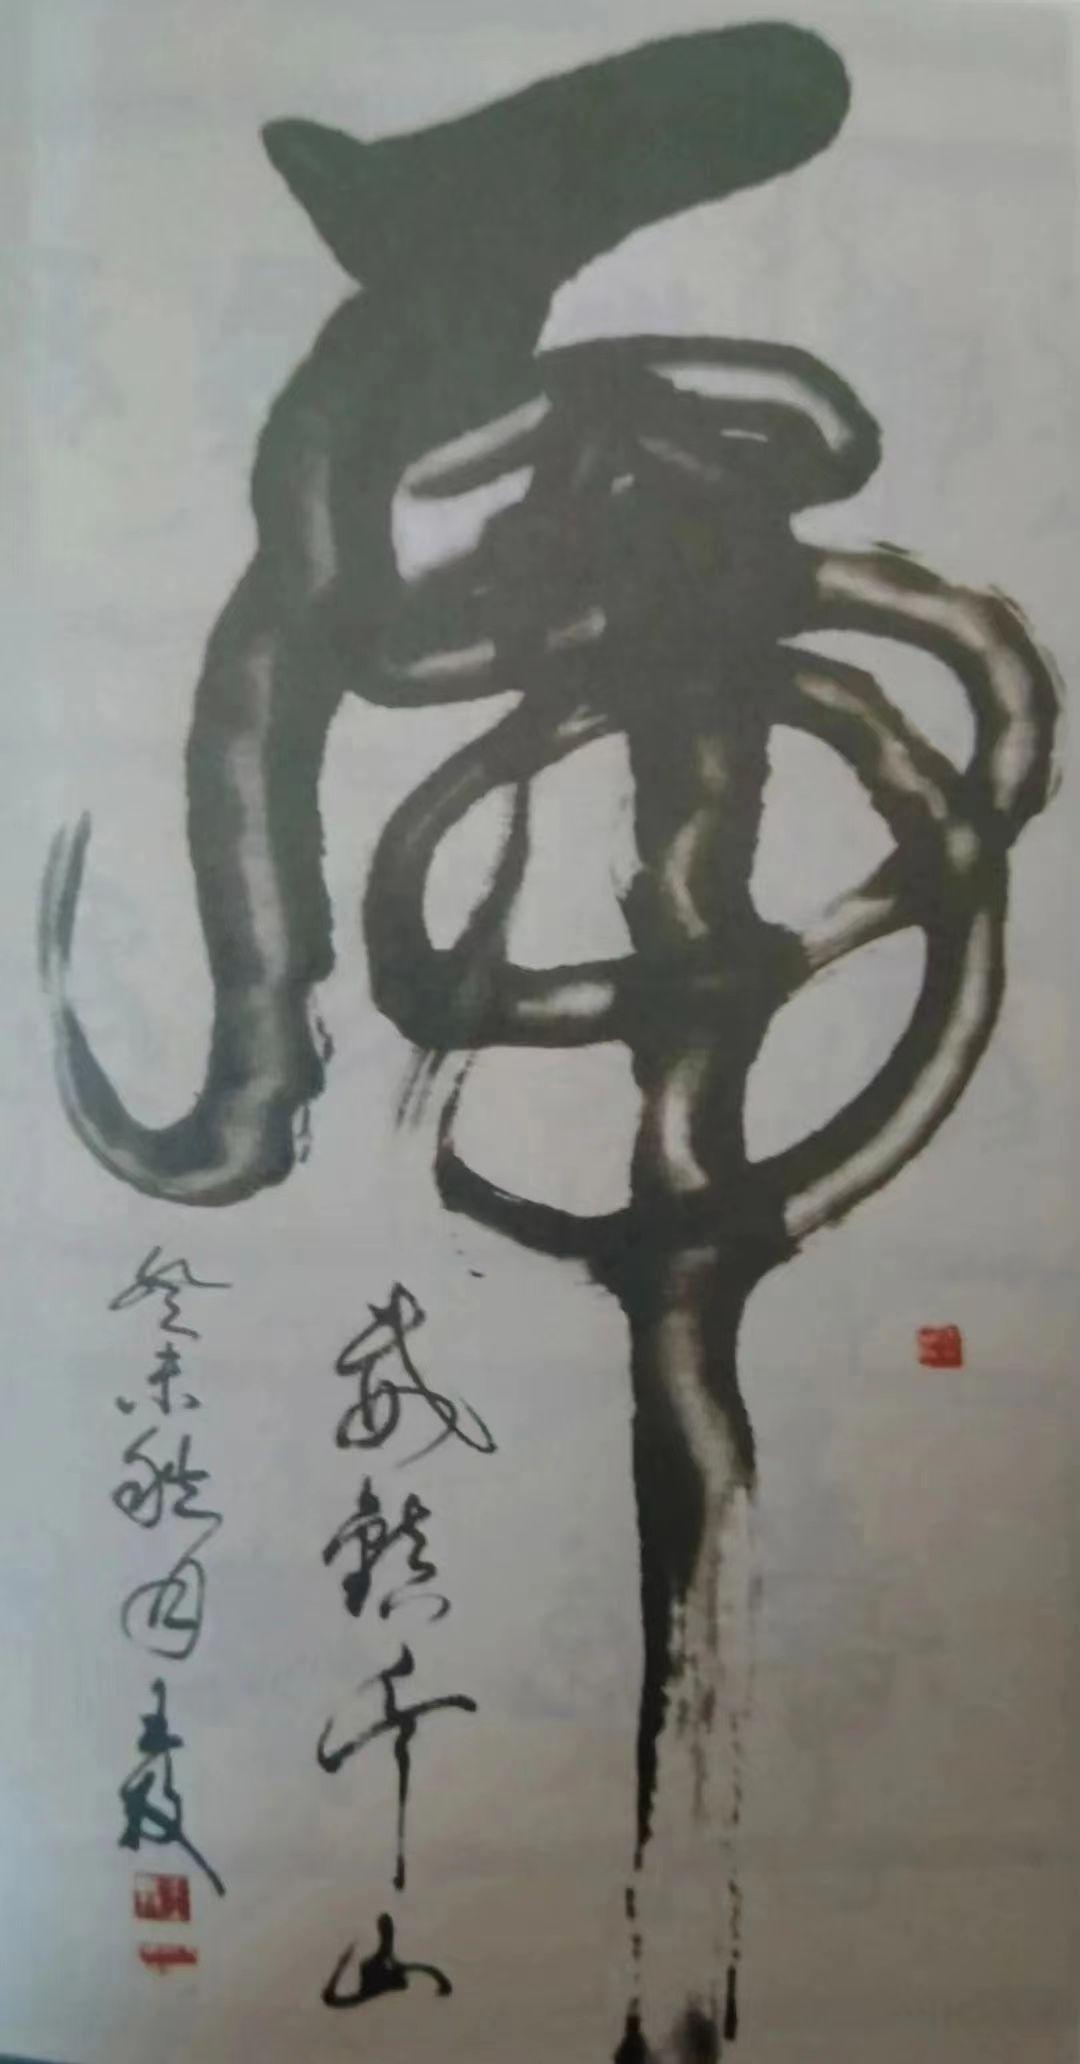 虎
威镇千山
癸未秋月王